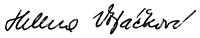 Helena Vojáčková